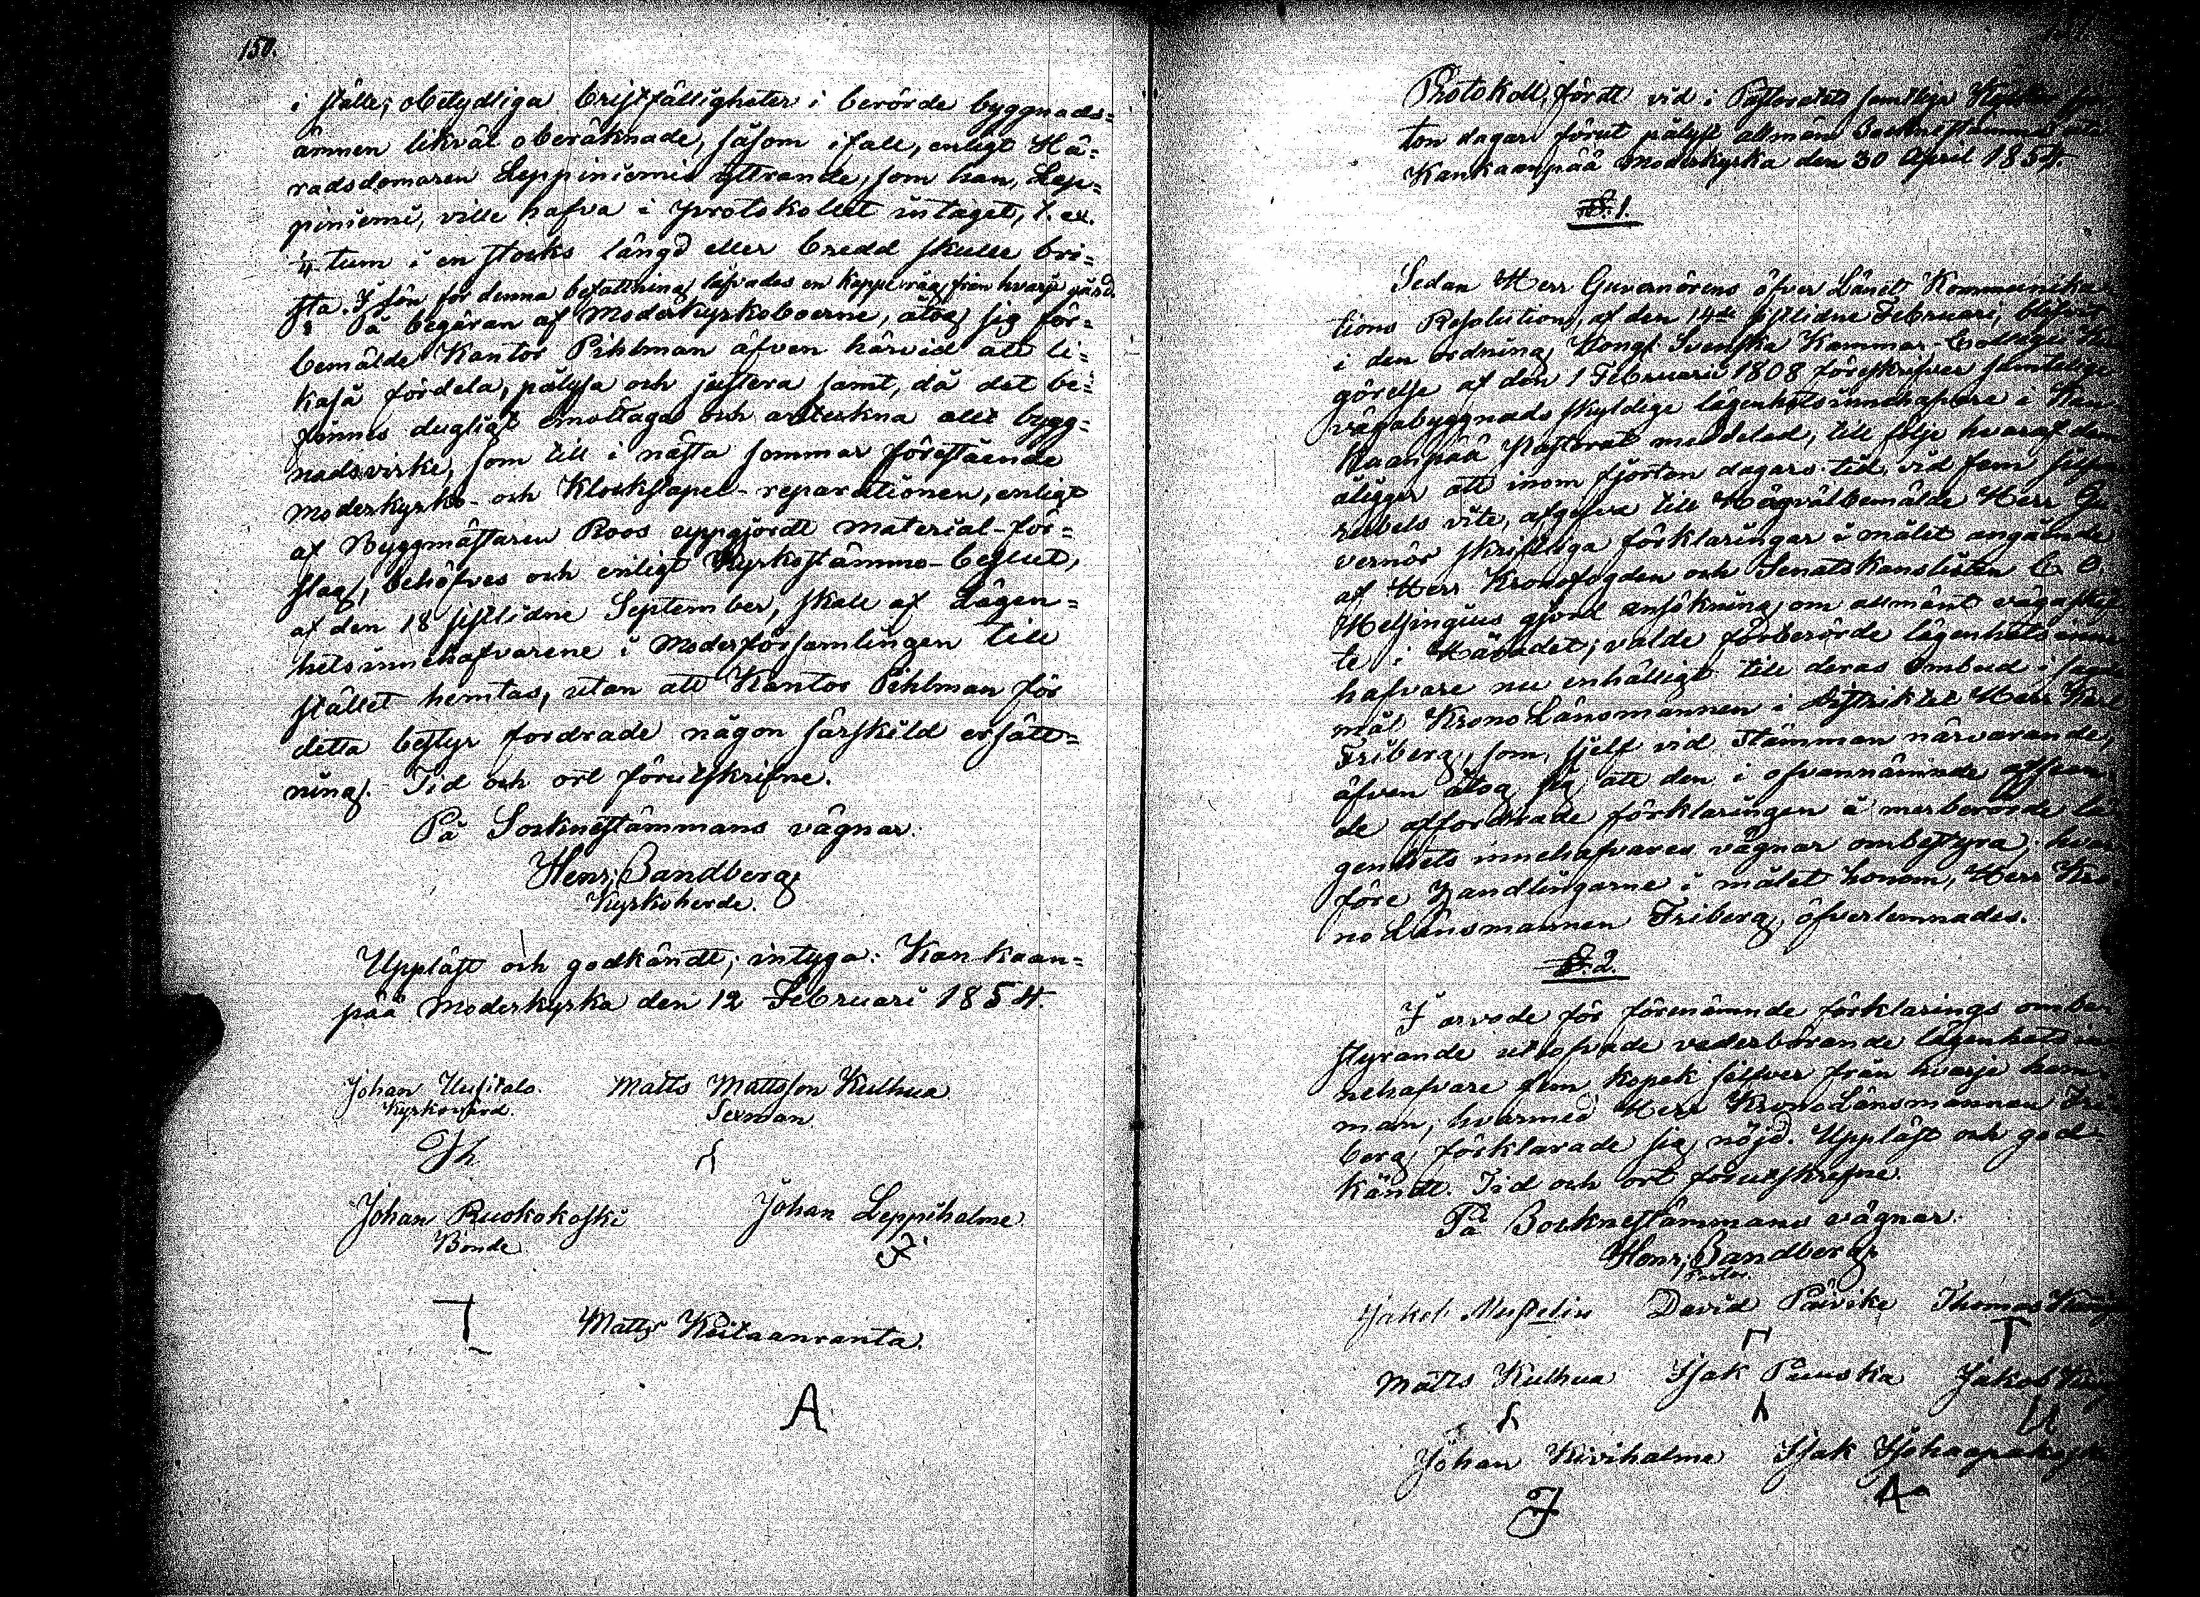 150.
i ställe; obetydliga bristfälligheter i berörde byggnads=
ämnen likväl oberäknade, såsom ifall, enligt Hä=
radsdomaren Leppiniemis yttrande, som han, Lep=
piniemi, ville hafva i protokollet intaget, t. ex.
1/4 tum i en stocks längd eller bredd skulle bri=
sta. I lön för denna befattning lofvades en kappe råg från hvarje gård.
På begäran af Moderkyrkoboerne, åtog sig för=
bemälde Kantor Pihlman äfven härvid att li=
kaså fördela, pålysa och justera samt, då det be=
finnes dugligt emottaga och anteckna allt bygg=
nadsvirke, som till i nästa sommar förestående
Moderkyrko- och Klockstapel-reparationen, enligt
af Byggmästaren Roos uppgjordt material-för=
slag, behöfves och enligt Kyrkostämmo-beslut,
af den 18 sistlidne September, skall af Lägen=
hetsinnehafvarene i Moderförsamlingen till
stället hemtas, utan att Kantor Pihlman för
detta bestyr fordrade någon särskild ersätt=
ning. Tid och ort förutskrifne.
På Socknestämmans vägnar:
Henr. Sandberg
Kyrkoherde.
Uppläst och godkändt; intyga: Kankaan=
pää Moderkyrka den 12 Februari 1854.
Johan Uusitalo Matts Mattsson Kulhua
Kyrkovärd. Sexman
Johan Ruokokoski Johan Leppiholme
Bonde
Matts Keitaanranta.
A
Protokoll, fördt vid i Pastoratets samtliga
ton dagar förut pålyst allmän Socknestämma
Kankaanpää Moderkyrka den 30 April 1854.
§. 1.
Sedan Herr Guvernörens öfver Länet Kommunika
tions Resolution, af den 14de sistlidne Februari, blifvit
i den ordning Kongl. Svenska Kammar-Collegii
görelse af den 1 Februarii 1808 föreskrifver samtelige
vägabyggnads skyldige lägenhetsinnehafvare i Kan
kaanpää Pastorat meddelad, till följe hvaraf dem
åligger att inom fjorton dagars tid, vid fem silfver
rubels vite, afgifva till Högvälbemälde Herr Gu
vernör skriftliga förklaringar i målet angående
af Herr Kronofogden och Senatskanslisten C. O.
Helsingius gjord ansökning om allmänt vägaskif
te i Häradet; valde förberörde lägenhetsinne
hafvare nu enhälligt till deras ombud i sagde
mål Krono Länsmannen i Distriktet Herr Karl
Friberg, som, sjelf vid Stämman närvarande,
äfven åtog sig att den i ofvannämnde afseen
de affordrade förklaringen å merberörde lä
genhets innehafvares vägnar ombestyra; hvar
före handlingarne i målet honom, Herr Kro
no Länsmannen Friberg, öfverlemnades.
§. 2.
I arvode för förenämnde förklarings ombe
styrande utlofvade vederbörande lägenhetsin
nehafvare fem kopek silfver från hvarje hem
man, hvarmed Herr Krono Länsmannen Fri
berg förklarade sig nöjd. Uppläst och god
kändt. Tid och ort förutskrifne.
På Socknestämmans vägnar:
Henr. Sandberg
Pastor.
Jakob David Päivike Thomas
Matts Kulhua Isak Puuska Jakob
Johan Kiviholme Isak